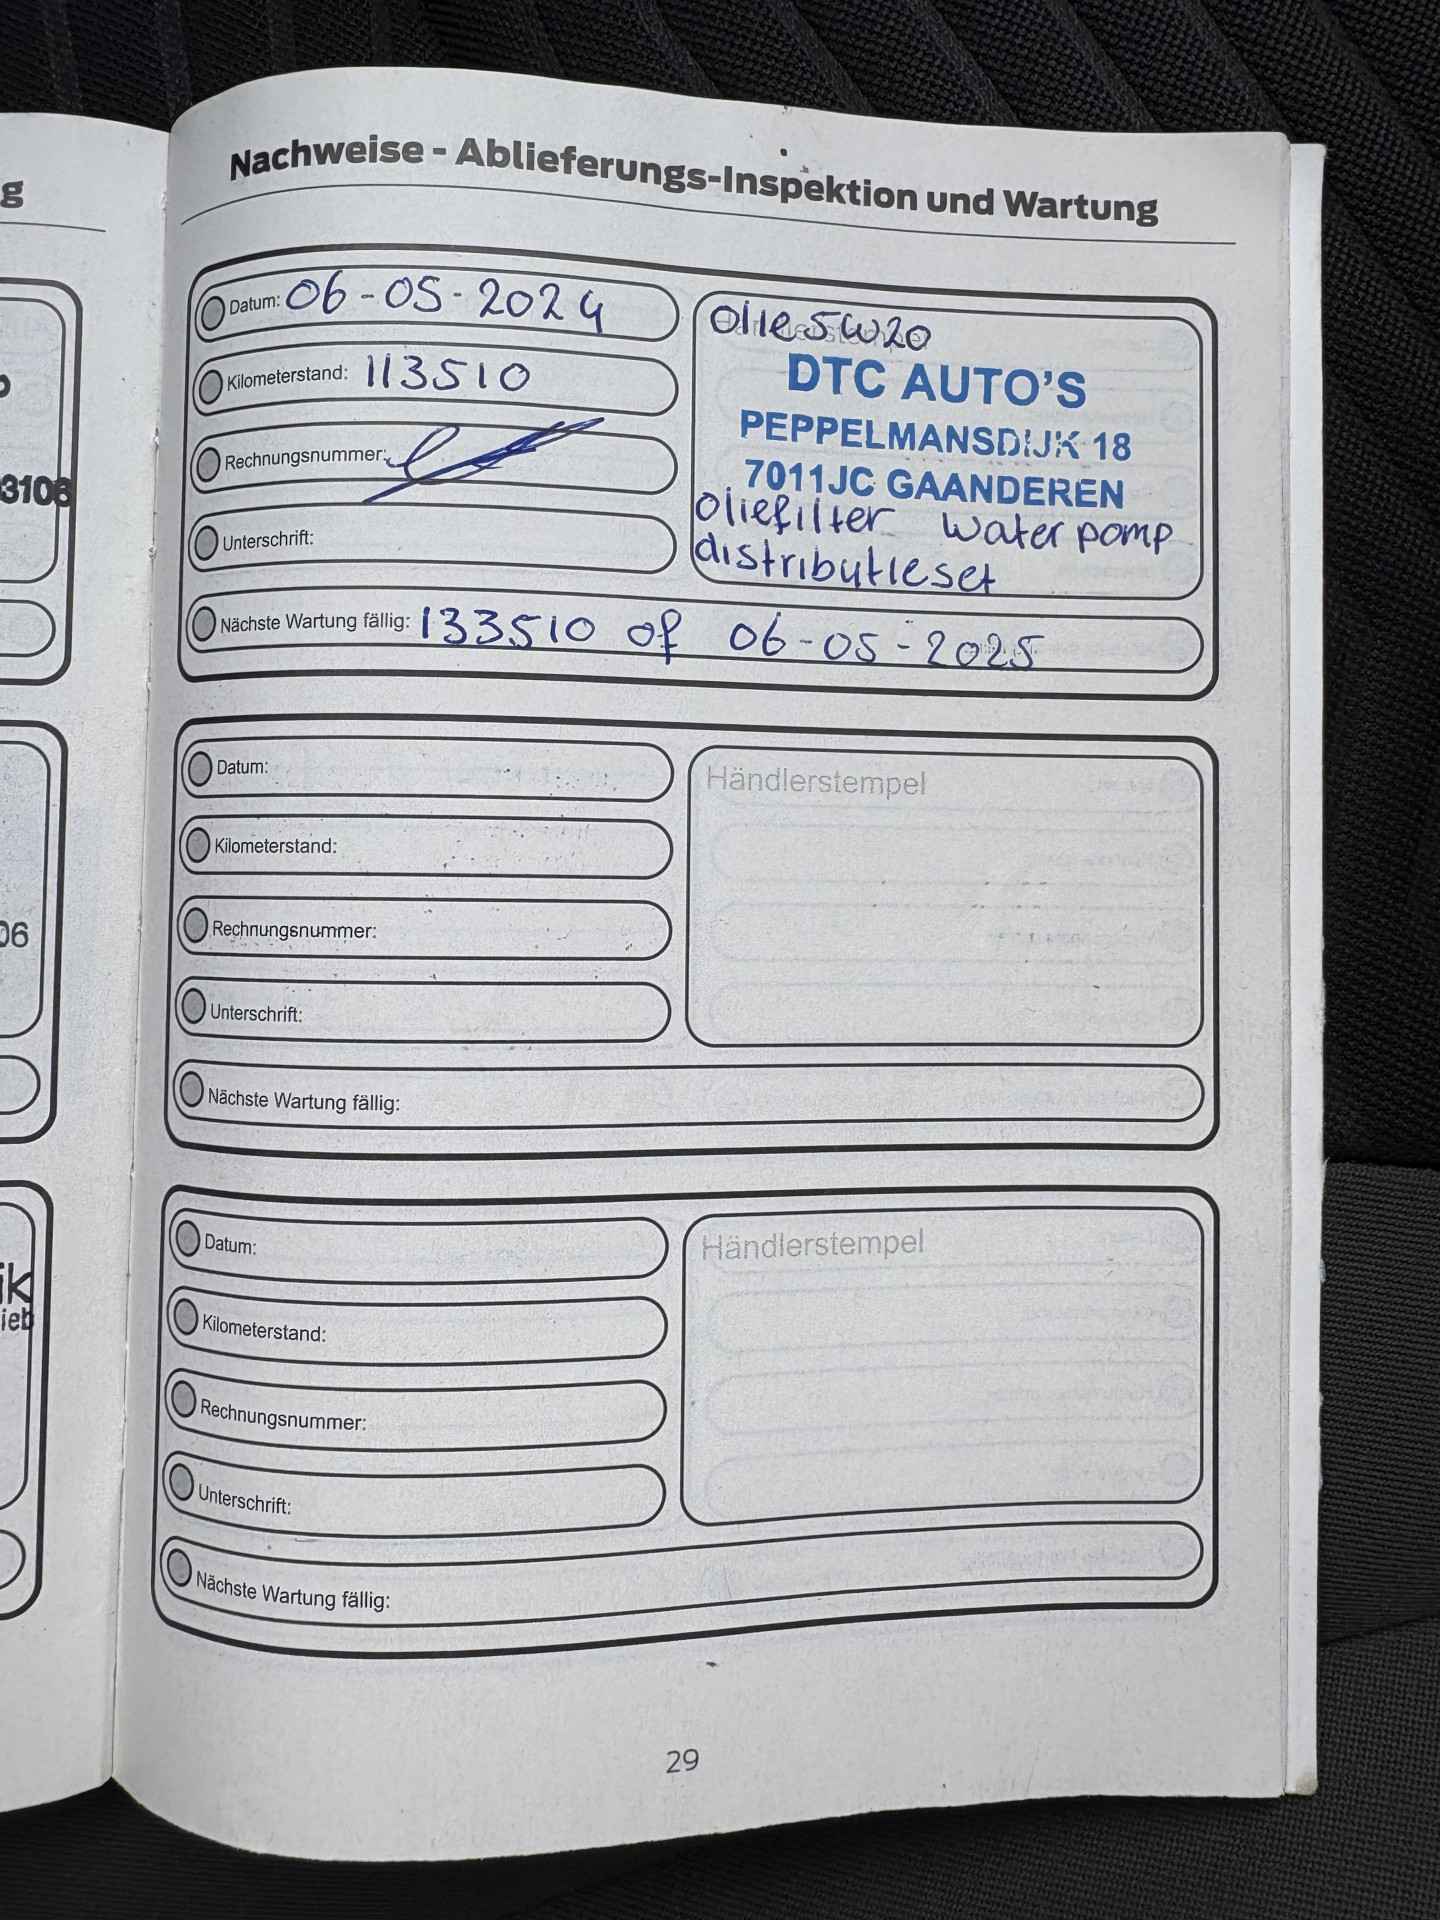 g
3106
06
ik
ieb
Nachweise - Ablieferungs-Inspektion und Wartung
Datum: 06-05-2024
Kilometerstand: 113510
Rechnungsnummer:
Unterschrift:
olie 5W20
DTC AUTO'S
PEPPELMANSDIJK 18
7011JC GAANDEREN
oliefilter waterpomp
distributieset
Nächste Wartung fällig: 133510 of 06-05-2025
Datum:
Kilometerstand:
Rechnungsnummer:
Unterschrift:
Händlerstempel
Nächste Wartung fällig:
Datum:
Kilometerstand:
Rechnungsnummer:
Unterschrift:
Händlerstempel
Nächste Wartung fällig:
29